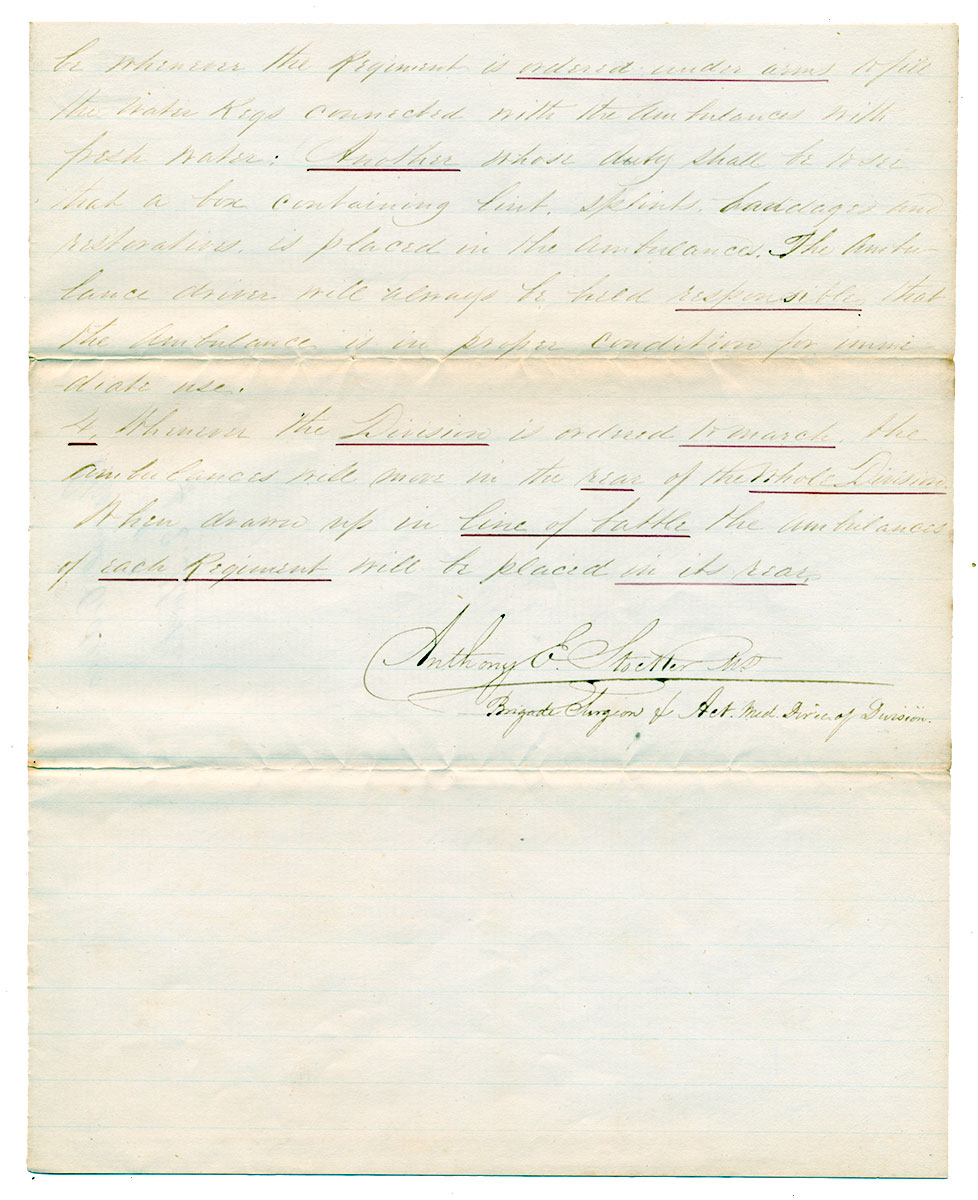 be whenever the Regiment is ordered under arms to fill
the Water Kegs connected with the Ambulances with
fresh water: Another whose duty shall be to see
that a box containing lint, splints, bandages and
restoratives, is placed in the Ambulances. The Ambu-
lance driver will always be held responsible that
the Ambulance is in proper condition for imme-
diate use.
4 Whenever the Division is ordered to march, the
Ambulances will move in the rear of the Whole Division
When drawn up in line of battle the Ambulances
of each Regiment will be placed in its rear.
Anthony E. Stocker MD
Brigade Surgeon & Act. Med. Direc. of Division.